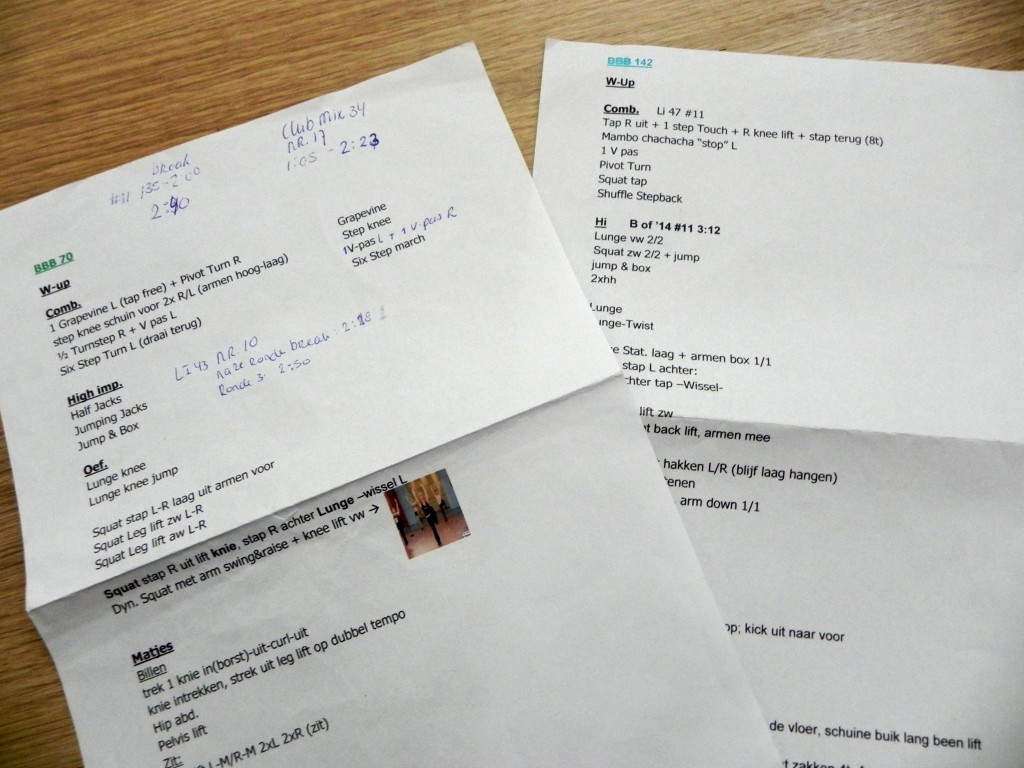 break
#11 1:35-2:00
2:40
Club Mix 34
NR. 17
1:05 - 2:23
BBB 70
W-up
Comb.
1 Grapevine L (tap free) + Pivot Turn R
step knee schuin voor 2x R/L (armen hoog-laag)
½ Turnstep R + V pas L
Six Step Turn L (draai terug)
Grapevine
Step knee
1V-pas L + 1 V-pas R
Six Step march
LI 43 NR. 10
na 2e ronde break: 2:18
Ronde 3: 2:50
High imp.
Half Jacks
Jumping Jacks
Jump & Box
Oef.
Lunge knee
Lunge knee jump
Squat stap L-R laag uit armen voor
Squat Leg lift zw L-R
Squat Leg lift aw L-R
Squat stap R uit lift knie, stap R achter Lunge –wissel L
Dyn. Squat met arm swing&raise + knee lift vw →
Matjes
Billen
trek 1 knie in(borst)-uit-curl-uit
knie intrekken, strek uit leg lift op dubbel tempo
Hip abd.
Pelvis lift
Zit:
L-M/R-M 2xL 2xR (zit)
BBB 142
W-Up
Comb. Li 47 #11
Tap R uit + 1 step Touch + R knee lift + stap terug (8t)
Mambo chachacha "stop" L
1 V pas
Pivot Turn
Squat tap
Shuffle Stepback
Hi B of '14 #11 3:12
Lunge vw 2/2
Squat zw 2/2 + jump
jump & box
2xhh
Lunge
unge-Twist
Stat. laag + armen box 1/1
stap L achter:
chter tap –Wissel-
lift zw
back lift, armen mee
hakken L/R (blijf laag hangen)
tenen
arm down 1/1
op; kick uit naar voor
de vloer, schuine buik lang been lift
zakken